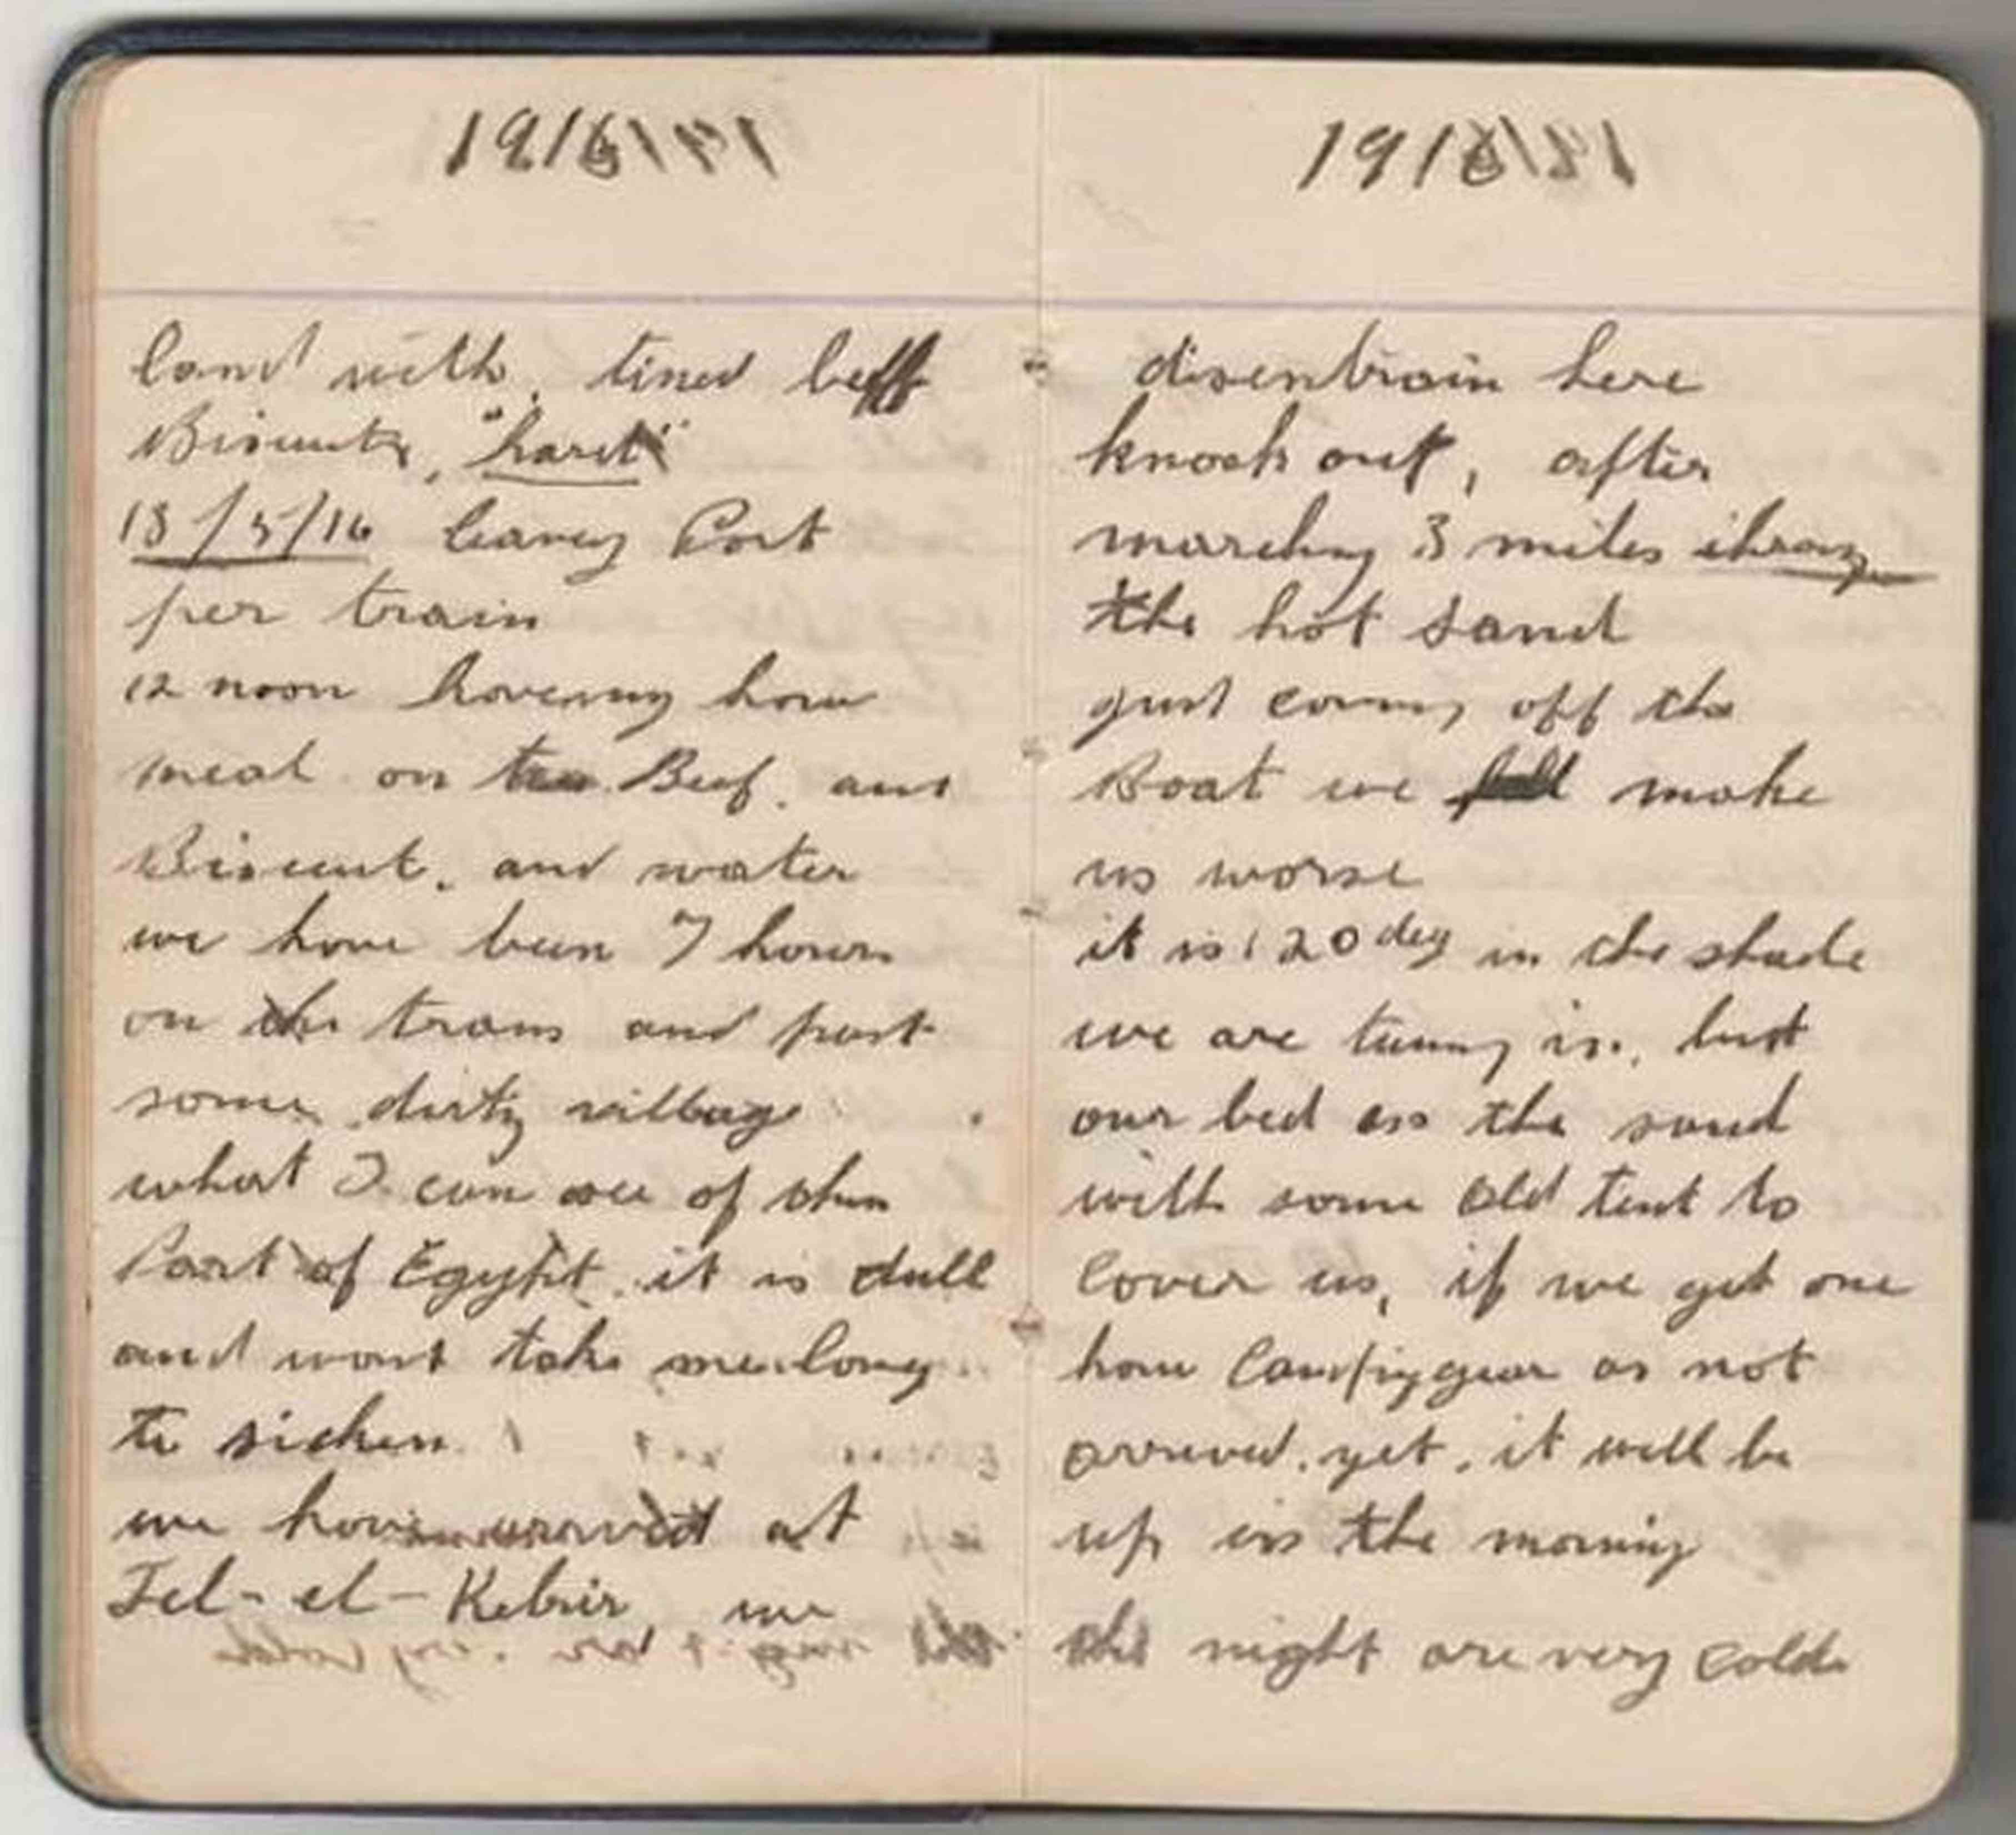 1916
land with tined beff
Biscuits, "hard"
18/5/16 leaving Port
per train
12 noon havening how
meal on Beef. and
Biscuit. and water
we have been 7 hours
on the trans and past
some dirty village
what I can see of this
Part of Egypt it is dull
and wont take me long
to sicken
we have arrived at
Tel-el-Kebir we
1916
disentrain here
knock out, after
marching 3 miles
the hot sand
just coming off the
Boat we make
us worse
it is 120 deg in the shade
we are turning in, but
our bed is the sand
with some old tent to
cover us, if we get one
how Campinggear as not
arrived yet. it will be
up in the morning
the night are very cold